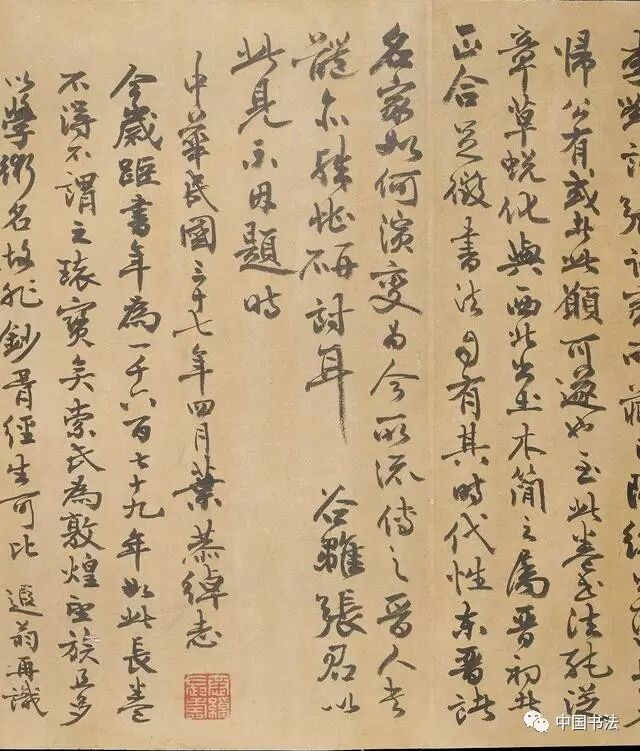 帰公有或者此願可遂也至此卷書法純從
章草蛻化與西北出土木簡之屬晉初者
正合足徵書法自有其時代性東晉諸
名家如何演變為今所流傳之晉人書
體亦殊堪研討耳 谷雛張君以
此見示因題時
中華民國三十七年四月葉恭綽志
今歲距書年為一千六百七十九年如此長卷
不得不謂之瓌寶矣索氏為敦煌望族且多
以學術名故非鈔胥經生可比 遐翁再識
中国书法